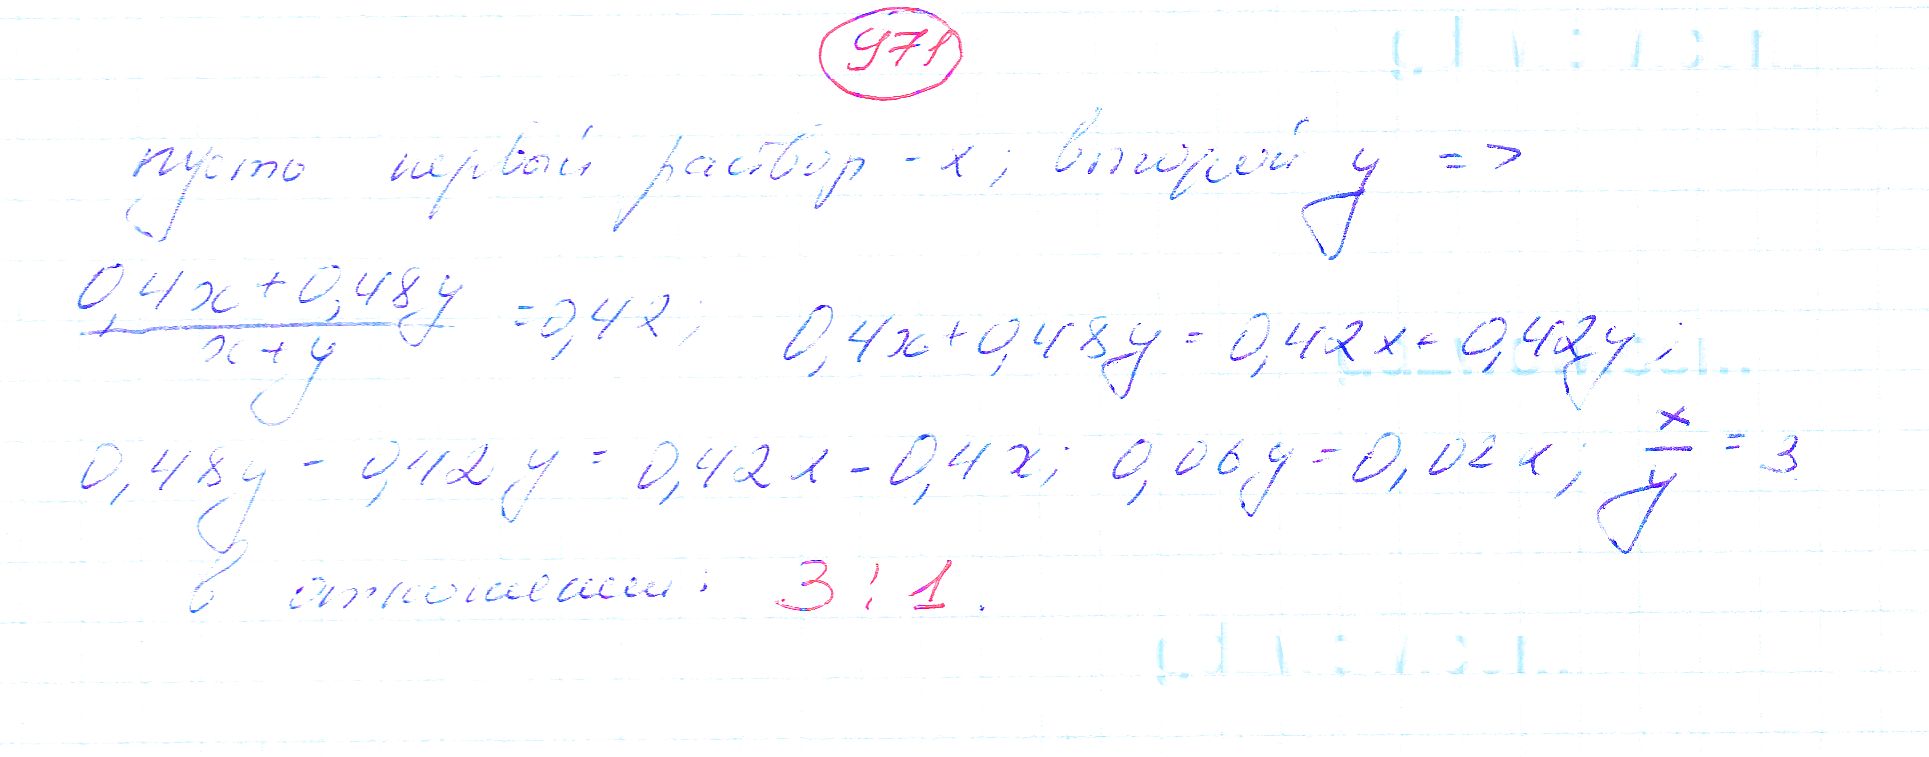 971
пусть первый раствор - x; второй y =>
0,4x+0,48y / x+y = 0,42; 0,4x+0,48y = 0,42x+0,42y;
0,48y - 0,42y = 0,42x - 0,4x; 0,06y = 0,02x; x/y = 3
В отношении: 3 : 1.